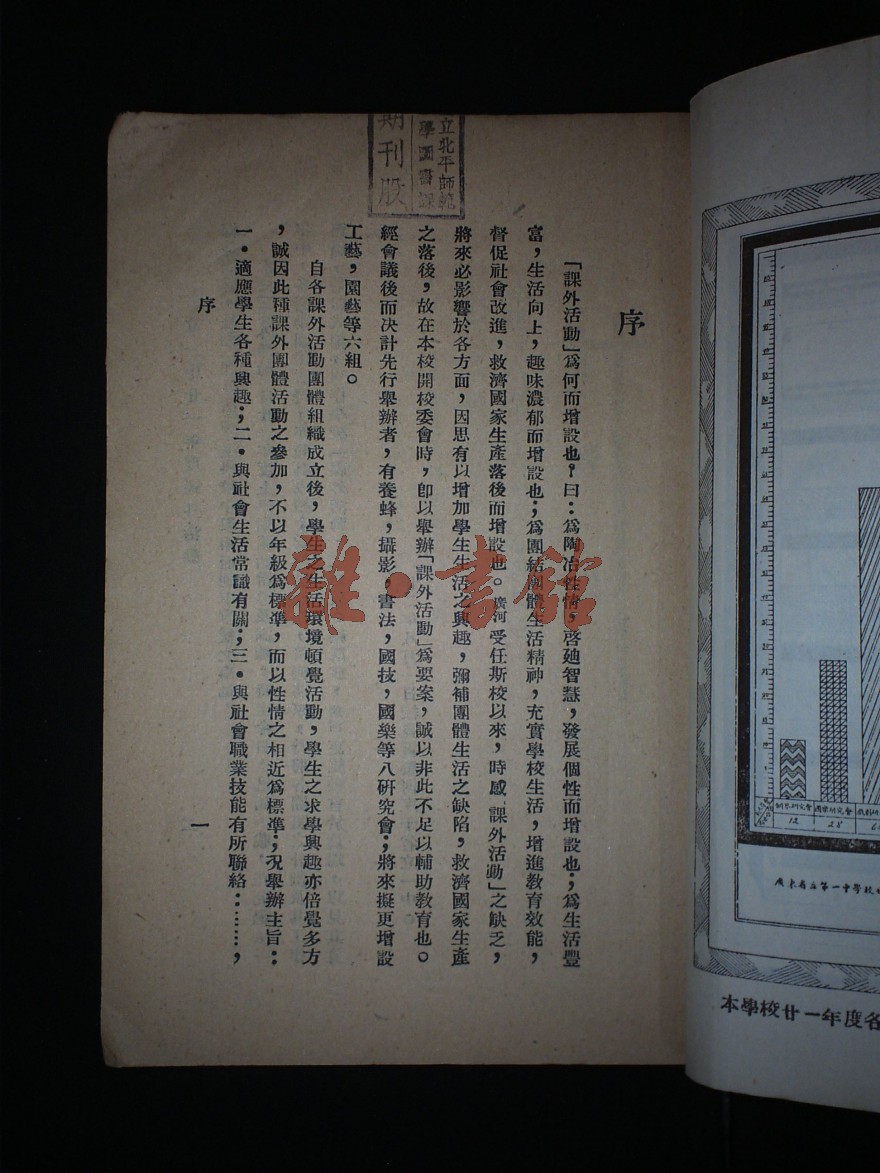 期刊股
立北平師範
學圖書課
序
「課外活動」爲何而增設也?曰:爲陶冶性情,啓廸智慧,發展個性而增設也;爲生活豐
富,生活向上,趣味濃郁而增設也;爲團結團體生活精神,充實學校生活,增進教育效能,
督促社會改進,救濟國家生產落後而增設也。廣河受任斯校以來,時感「課外活動」之缺乏,
將來必影響於各方面,因思有以增加學生生活之興趣,彌補團體生活之缺陷,救濟國家生產
之落後,故在本校開校委會時,卽以舉辦「課外活動」爲要案,誠以非此不足以輔助教育也。
經會議後而決計先行舉辦者,有養蜂,攝影,書法,國技,國樂等八研究會;將來擬更增設
工藝,園藝等六組。
自各課外活動團體組織成立後,學生之生活環境頓覺活動,學生之求學興趣亦倍覺多方
,誠因此種課外團體活動之參加,不以年級爲標準,而以性情之相近爲標準;況舉辦主旨:
一•適應學生各種興趣;二•與社會生活常識有關;三•與社會職業技能有所聯絡:……,
序
一
雜·書館
研究會
國樂研究會
12
28
廣東省立第一中學校
本學校廿一年度各